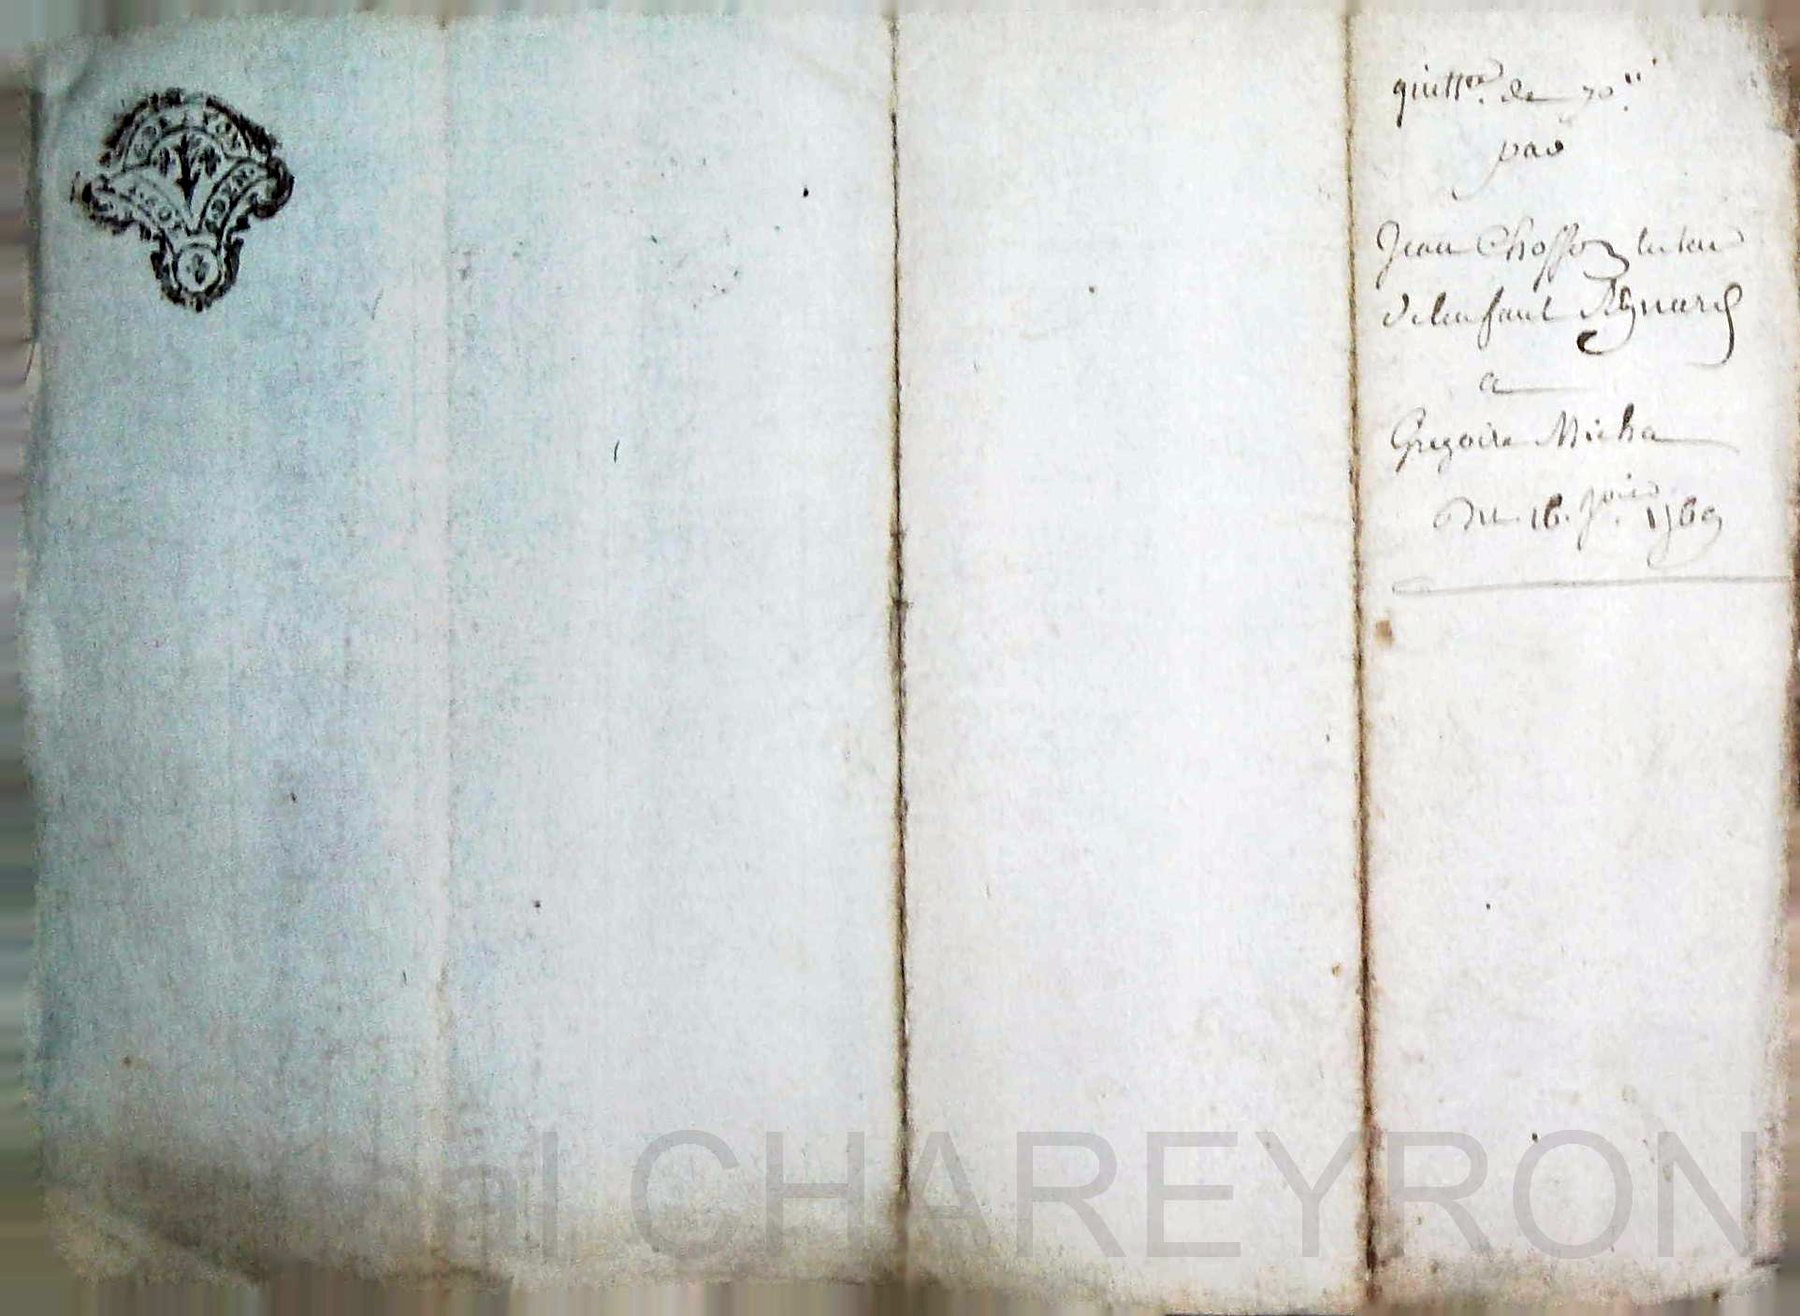 quitt.ce de 70.ll
par
Jean Chosson tuteur
de lenfant Reynard
a
Gregoire Micha
Du 16. 1769
G DE LYON
CHAREYRON